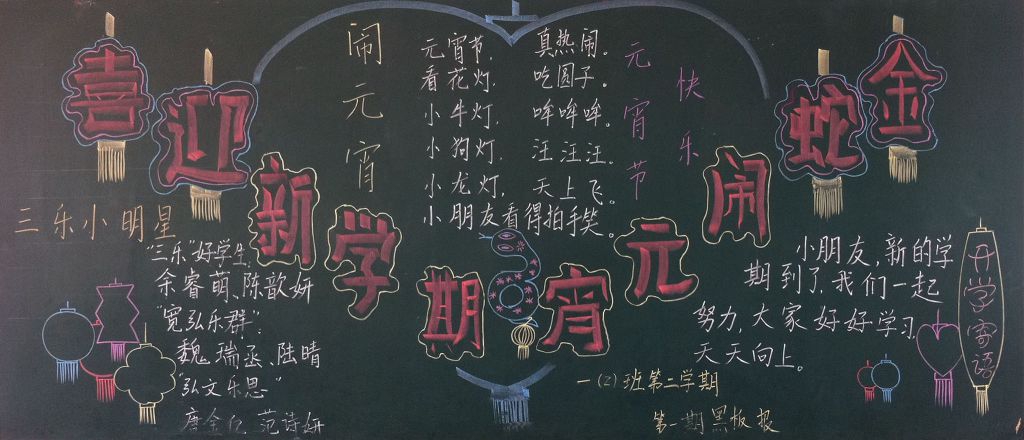 喜迎新学期
金蛇闹元宵
闹元宵
元宵节，真热闹。
看花灯，吃圆子。
小牛灯，哞哞哞。
小狗灯，汪汪汪。
小龙灯，天上飞。
小朋友看得拍手笑。
元宵节
快乐
三乐小明星
“三乐”好学生
余睿萌、陈歆妍
“宽弘乐群”：
魏瑞丞、陆晴
“弘文乐思”
唐 范诗妍
开学寄语
小朋友，新的学
期到了，我们一起
努力，大家好好学习，
天天向上。
一（2）班第二学期
第一期黑板报